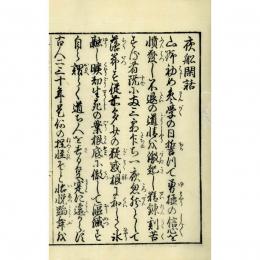 夜船閑話
山野初め參學の日誓つて勇猛の信心を
憤發し不退の道情を激起し精錬刻苦
する者既に兩三霜乍ち一夜忽然として
落節す從前多少の疑惑根に和して氷
融し曠劫生死の業根底に徹して漚滅す
自ら謂へらく道ち人を去る事寔に遠からず
古人二三十年是什麼の捏怪ぞと怡悦蹈舞を